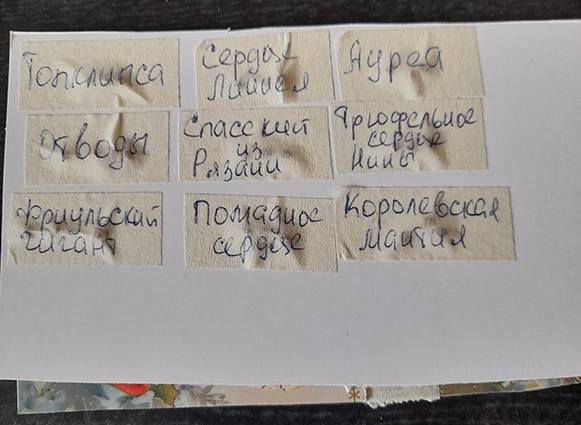 Топклипса
Сердце
Лилея
Аурея
Отводы
Спасский
из
Рязани
Трюфельное
сердце
Нины
Фриульский
гигант
Помадное
сердце
Королевская
мантия